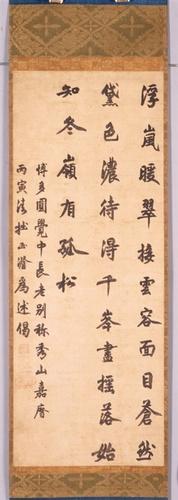 浮嵐暖翠接雲容面目蒼然
黛色濃待得千峯盡摇落始
知冬嶺有孤松
博多圓覺中長老別称秀山嘉曆
丙寅清拙正澄爲述偈